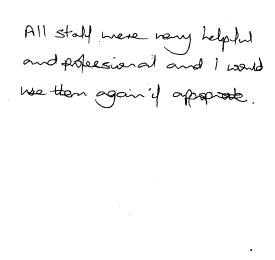 All staff were very helpful
and professional and I would
use them again if appropriate.